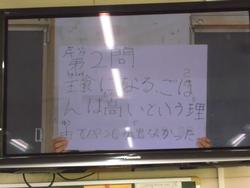 第2問
主食になる、ごは
んは高いという理
由で 出なかった